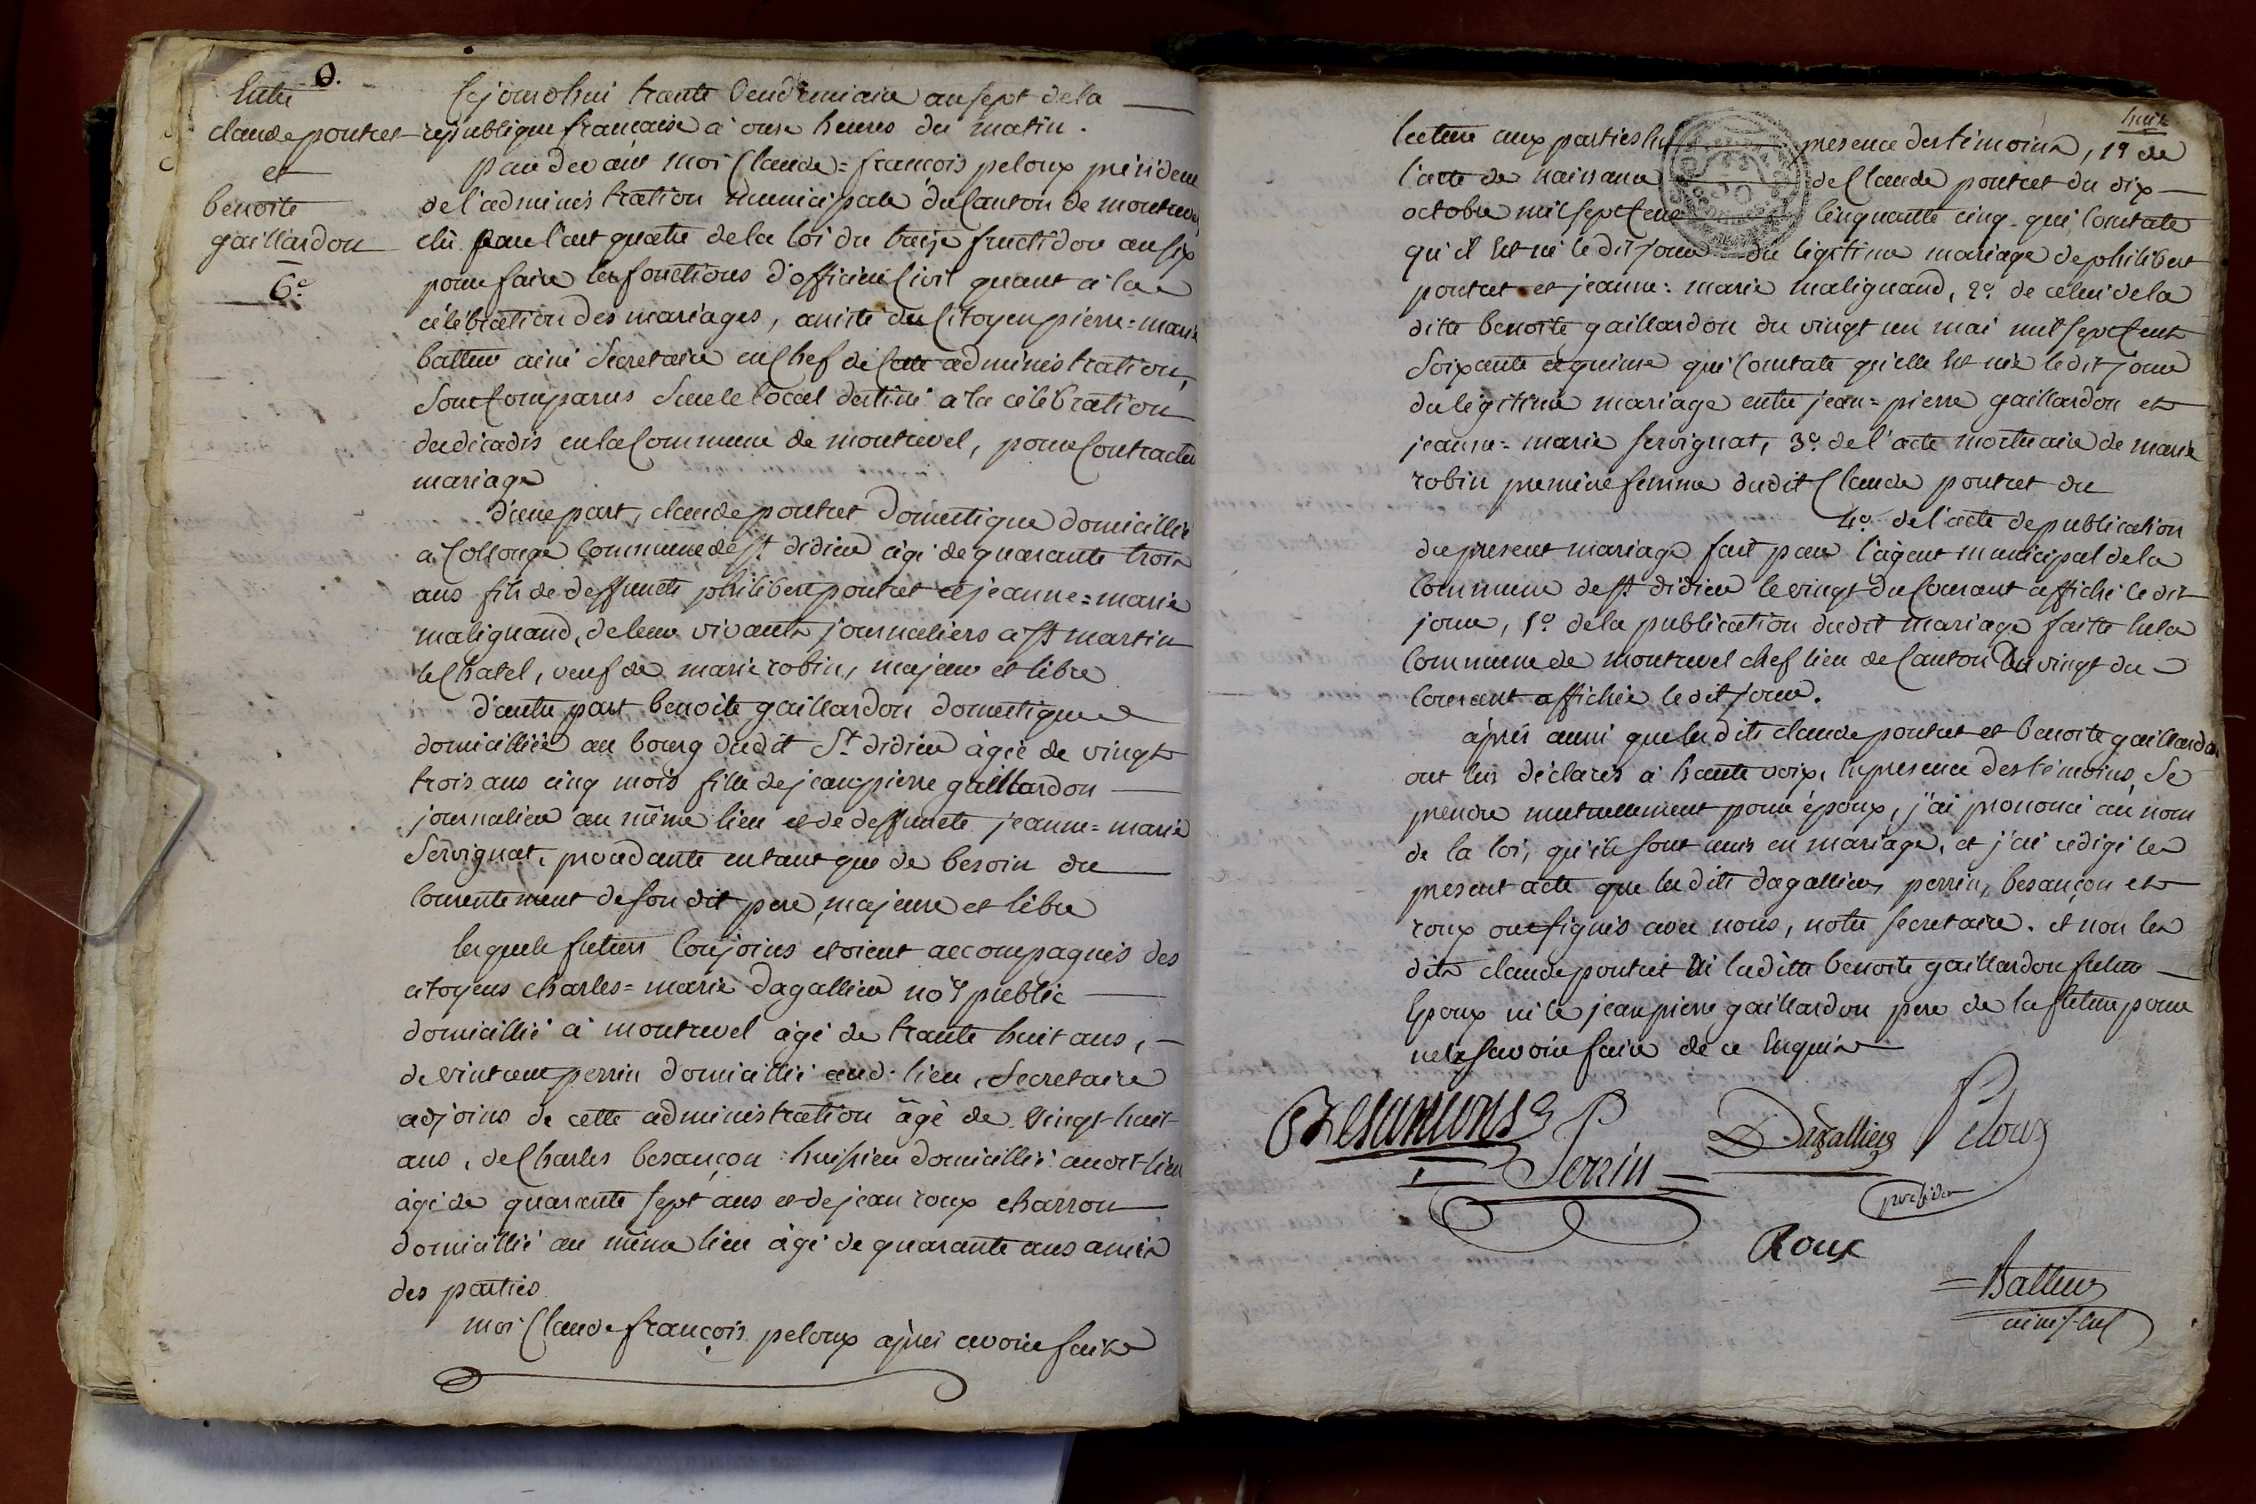 Entre
claude pontut
et
benoite
gaillardon
6e
Cejourdhui trante vendemiaire an sept de la
republique francaise a onze heures du matin.
par devant moi Claude=françois peloux président
de l'administration municipale du Canton de montrevel
élû par l'art quatre de la loi du treize fructidor an six
pour faire les fonctions d'officier Civil quant a la
célébration des mariages, assisté du Citoyen pierre=marie
batteur ainé Secretaire en Chef de Cette administration,
Sont Comparus Sur le local destiné a la célébration
du décadis en la Commune de montrevel, pour Contracter
mariage
d'une part, claude pontut Domestique domicillié
a Collonge Commune de St didier âgé de quarante trois
ans fils de deffuncts philibert pontut et jeanne=marie
malignand, de leur vivants journaliers a St martin
le Chatel, veuf de marie robin, majeur et libre
d'autre part benoite gaillardon domestique
domicilliée au bourg dudit St didier âgée de vingt
trois ans cinq mois fille de jean pierre gaillardon
journalier au même lieu et de deffuncte jeanne=marie
Servignat, procedante en tant que de besoin du
Consentement de son dit pere, majeure et libre
lesquels futurs Conjoins etoient accompagnés des
citoyens charles=marie dagallier nore public
domicillié a montrevel âgé de trante huit ans,
de vincent perrin domicillié aud. lieu, Secretaire
adjoins de cette administration âgé de vingt-huit
ans, de Charles besançon huissier domicillié audit lieu
âgé de quarante sept ans et de jean roux charron
domicillié au même lieu âgé de quarante ans amis
des parties
moi Claude françois peloux après avoir faite
huit
lecture aux parties En presence des témoins, 1º de
l'acte de naissance de Claude pontut du dix
octobre mil sept Cent Cinquante cinq qui Constate
qu'il Est né le dit jour du légitime mariage de philibert
pontut et jeanne=marie malignand, 2º de celui de la
ditte benoite gaillardon du vingt un mai mil sept Cent
Soixante et quinze qui Constate qu'elle Est née le dit jour
du légitime mariage entre jean=pierre gaillardon et
jeanne=marie servignat, 3º de l'acte mortuaire de marie
robin premiere femme dudit Claude pontut du
4º de l'acte de publication
du present mariage fait par l'agent municipal de la
Commune de St didier le vingt du Courant affiché le dit
jour, 5º de la publication dudit mariage faitte En la
Commune de montrevel chef lieu de Canton le vingt du
Courant affichée le dit jour.
après aussi que les dits claude pontut et benoite gaillardon
ont Eus déclarés a haute voix, En presence des témoins, Se
prendre mutuellement pour époux, j'ai prononcé au nom
de la loi, qu'ils sont unis en mariage, et j'ai rédigé le
present acte que les dits dagallier, perrin, besançon et
roux ont signés avec nous, notre secretaire. et non les
dits claude pontut ni laditte benoite gaillardon futur
Epoux ni le jean pierre gaillardon pere de la future pour
ne le savoir faire de ce Enquis
Besançons
Perrin
Dagallier
Peloux
président
Roux
Batteur